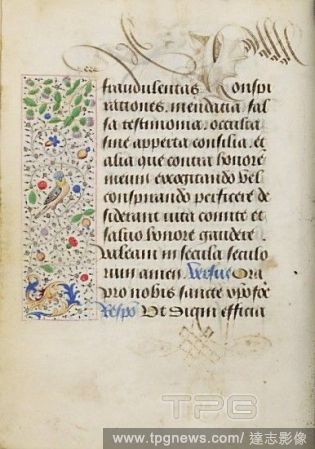 fraudulentas Conspi
rationes. mendatia fal
sa testimonia. occulta
sine apperta consilia. et
alia que contra honorē
meum excogitando vel
conspirando perficere de
siderant vita comite et
salvo honore gaudere.
Valeam in secula seculo
rum amen. Versus Ora
pro nobis sancte
Respō Ut digni efficia
TPG
www.tpgnews.com/ 達志影像